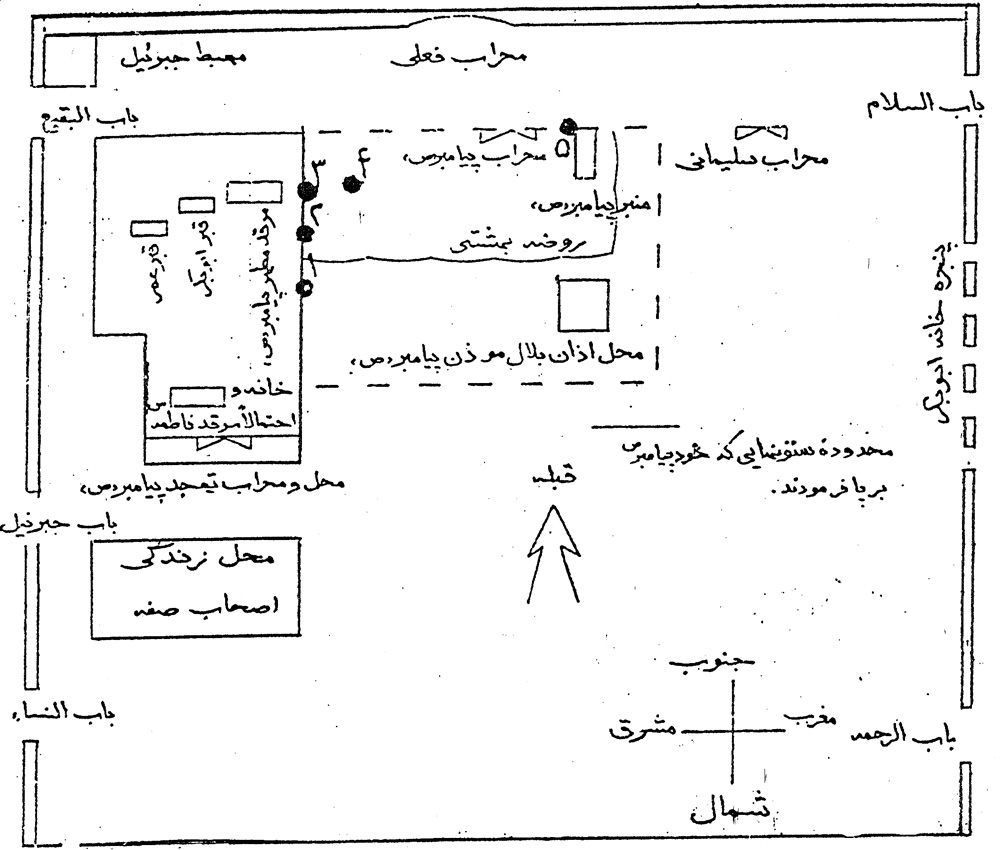 محراب فعلی
مهبط جبرئیل
باب السلام
باب البقیع
محراب سلیمانی
محراب پیامبر(ص)
۵
۴
۳
۲
۱
منبر پیامبر(ص)
روضه بهشتی
مرقد مطهر پیامبر(ص)
قبر ابوبکر
قبر عمر
پنجره خانه ابوبکر
محل اذان بلال موذن پیامبر(ص)
خانه و
احتمالاً مرقد فاطمه س
محدوده ستونهایی که خود پیامبر ص
بر پا فرمودند.
محل و محراب تهجد پیامبر(ص)
قبله
باب جبرئیل
محل زندگی
اصحاب صفه
جنوب
باب النساء
مغرب
مشرق
باب الرحمه
شمال